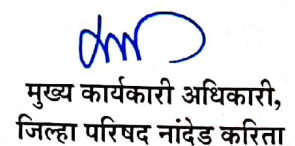 मुख्य कार्यकारी अधिकारी,
जिल्हा परिषद नांदेड करिता